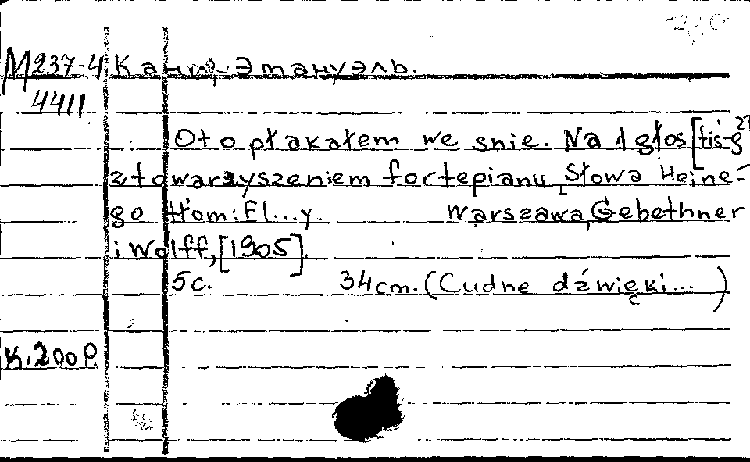 M237-4 Кани, Эмануэль.
4411
Oto płakałem we śnie. Na 1 głos [fis-g²]
z towarzyszeniem fortepianu, Słowa Heine-
go tłom: El...y Warszawa, Gebethner
i Wolff, [1905].
5c. 34cm. (Cudne dźwięki... )
К.200р.